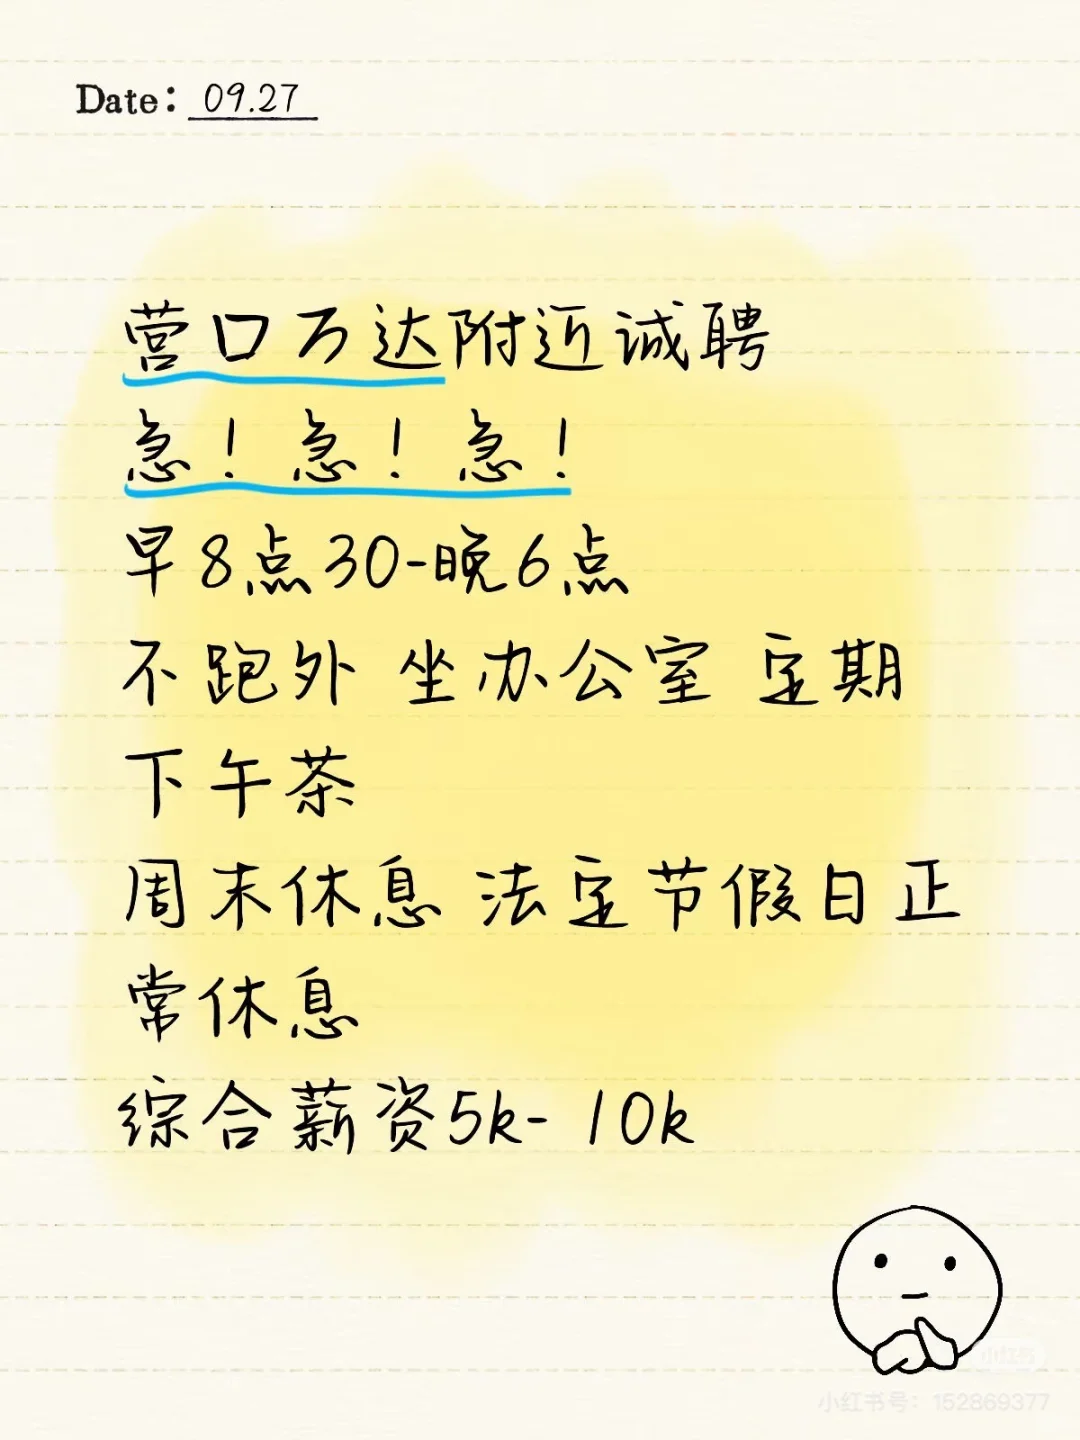 Date: 09.27
营口万达附近诚聘
急！急！急！
早8点30-晚6点
不跑外 坐办公室 定期
下午茶
周末休息 法定节假日正
常休息
综合薪资5k- 10k
小红书
小红书号: 152869377